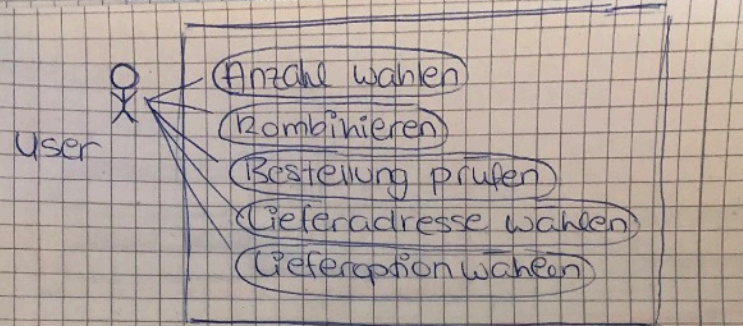 Anzahl wählen
Kombinieren
user
Bestellung prüfen
Lieferadresse wählen
Lieferoption wählen